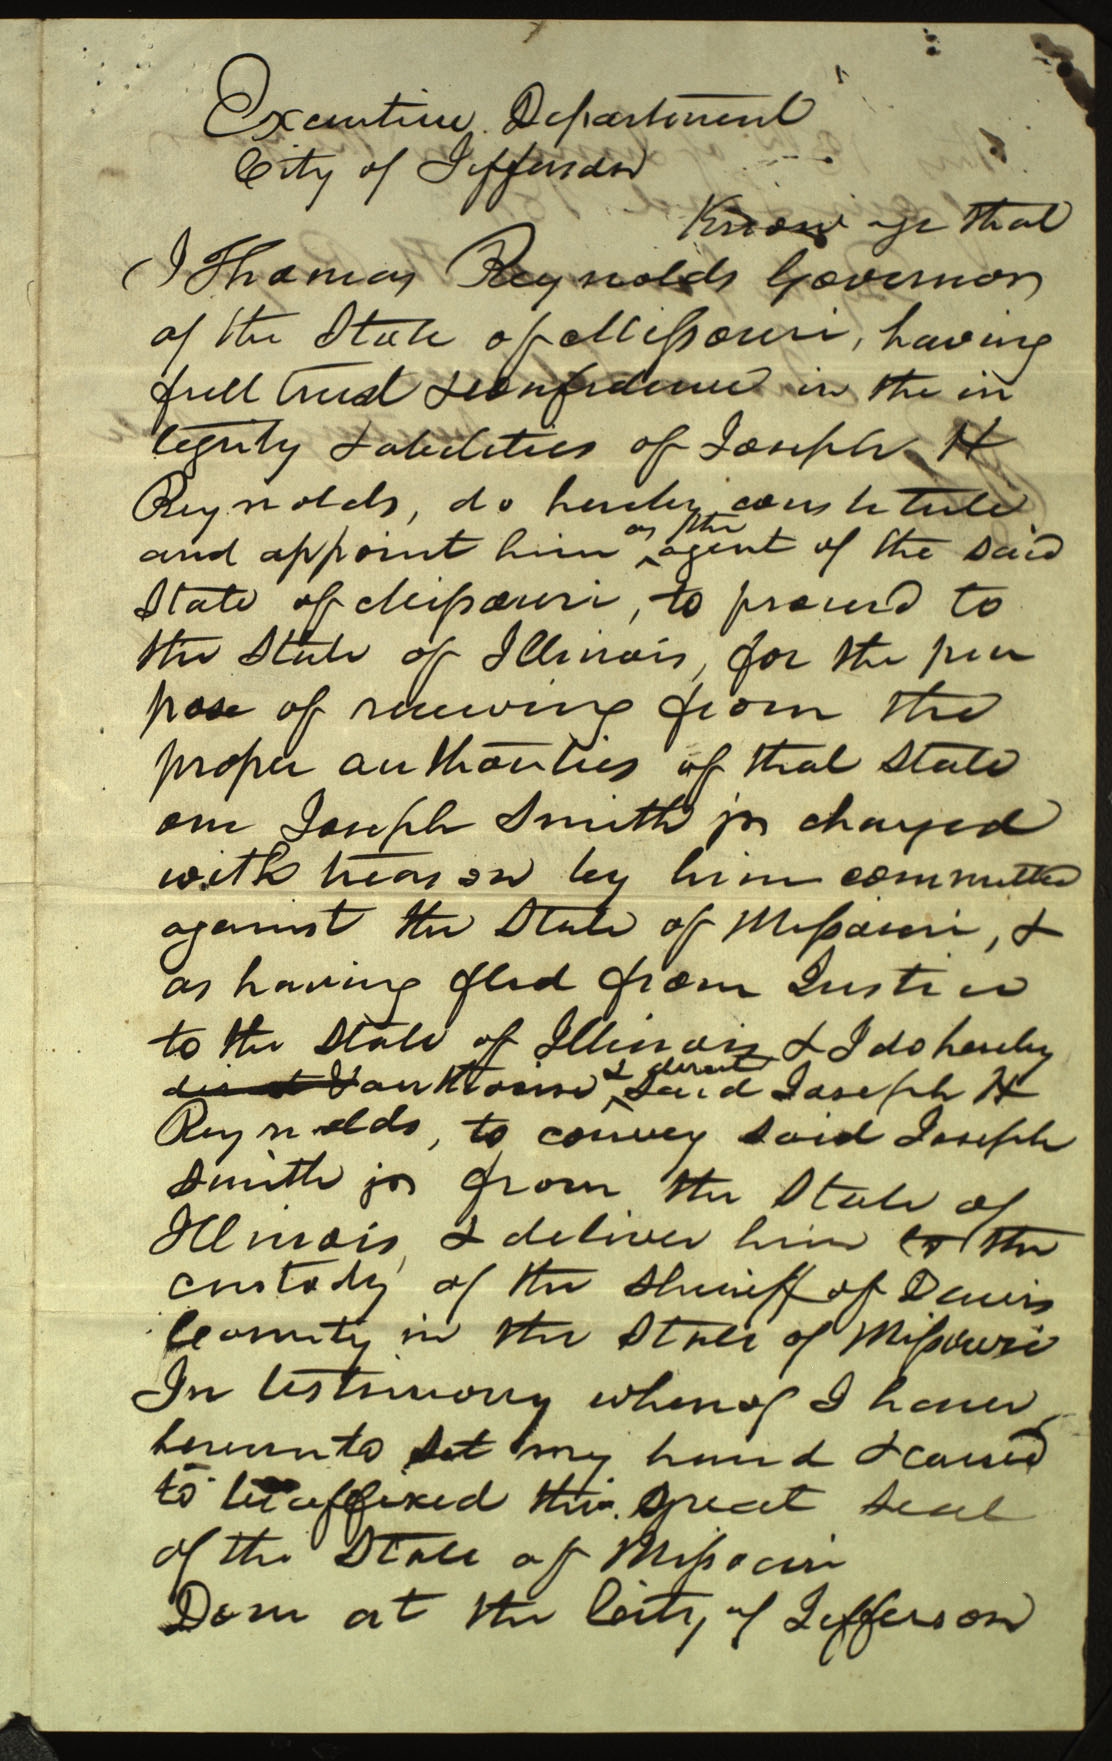 Executive Department
City of Jefferson
Know ye that
I Thomas Reynolds Governor
of the State of Missouri, having
full trust & confidence in the in
tegrity & abilities of Joseph H
Reynolds, do hereby constitute
and appoint him as the agent of the said
State of Missouri, to proceed to
the State of Illinois, for the pur
pose of receiving from the
proper authorities of that State
one Joseph Smith jr charged
with treason by him committed
against the State of Missouri, &
as having fled from Justice
to the State of Illinois & I do hereby
direct & authorise & direct said Joseph H
Reynolds, to convey said Joseph
Smith jr from the State of
Illinois, & deliver him to the
custody of the Sheriff of Daviss
County in the State of Missouri
In testimony whereof I have
hereunto set my hand & caused
to be affixed the great seal
of the State of Missouri
Done at the City of Jefferson